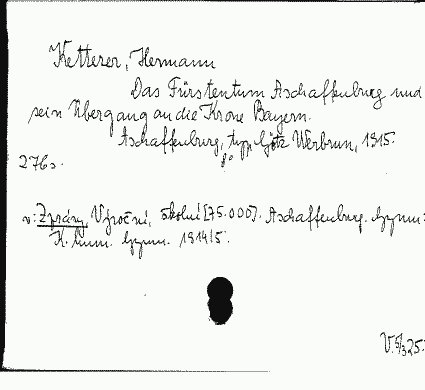 Ketterer, Hermann
Das Fürstentum Aschaffenburg und
sein Übergang an die Krone Bayern.
Aschaffenburg, typ. Götz Werbrun, 1915.
8°
276 s.
v: Zprávy, Výroční, školní [75.000]. Aschaffenburg. Gymn:
K. hum. Gymn. 1914/5.